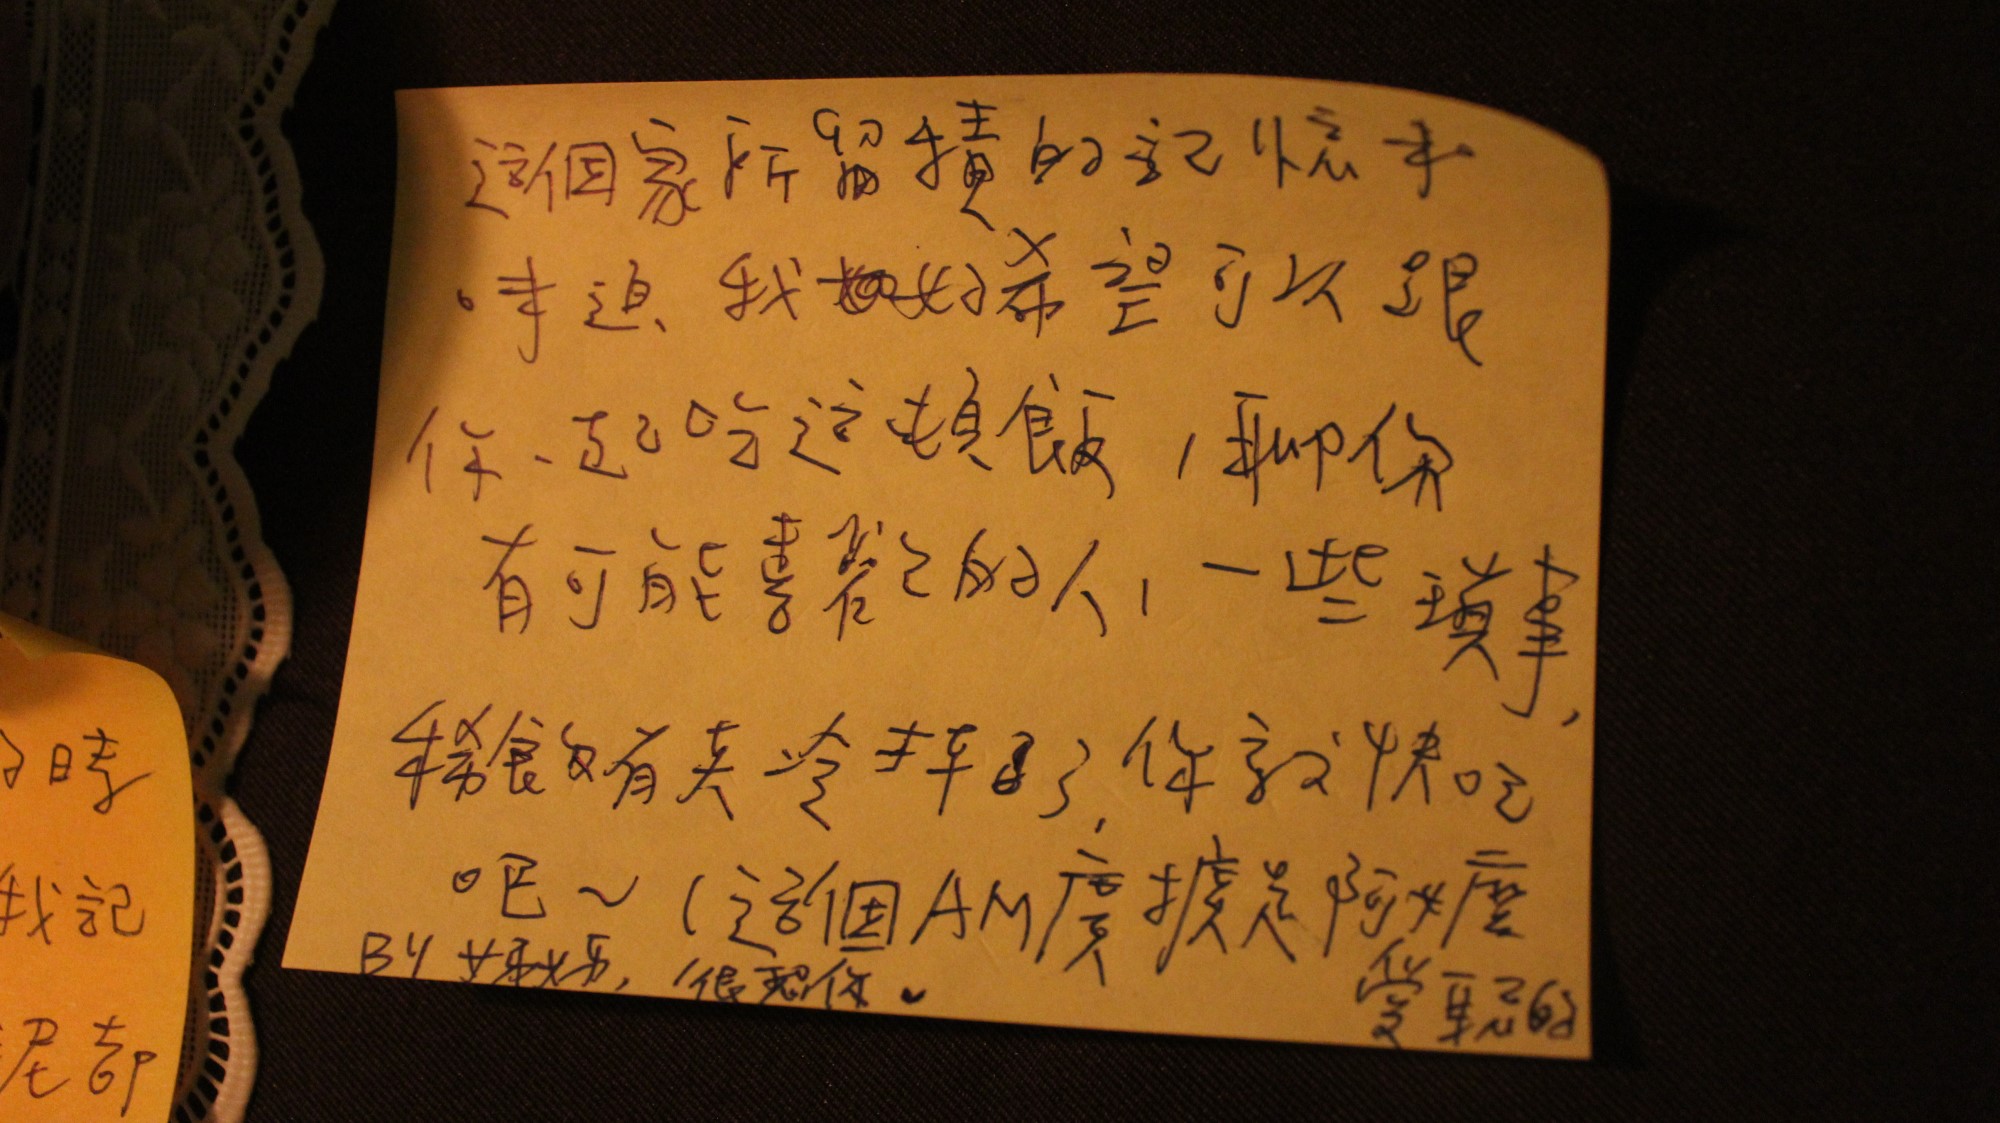 這個家所留積的記憶和
味道、我好希望可以跟
你一起吃這頓飯，聊你
有可能喜歡的人，一些瑣事，
稀飯有夾冷拌了，你就快吃
吧～（這個AM廣據是阿嬤
愛聽的
BY 女兒，很想你。
時
我記
尾都